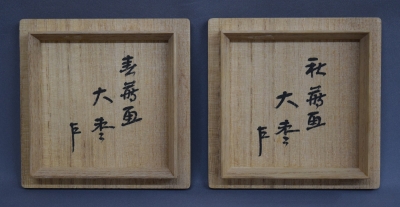 春蒔画
大棗
秋蒔画
大棗